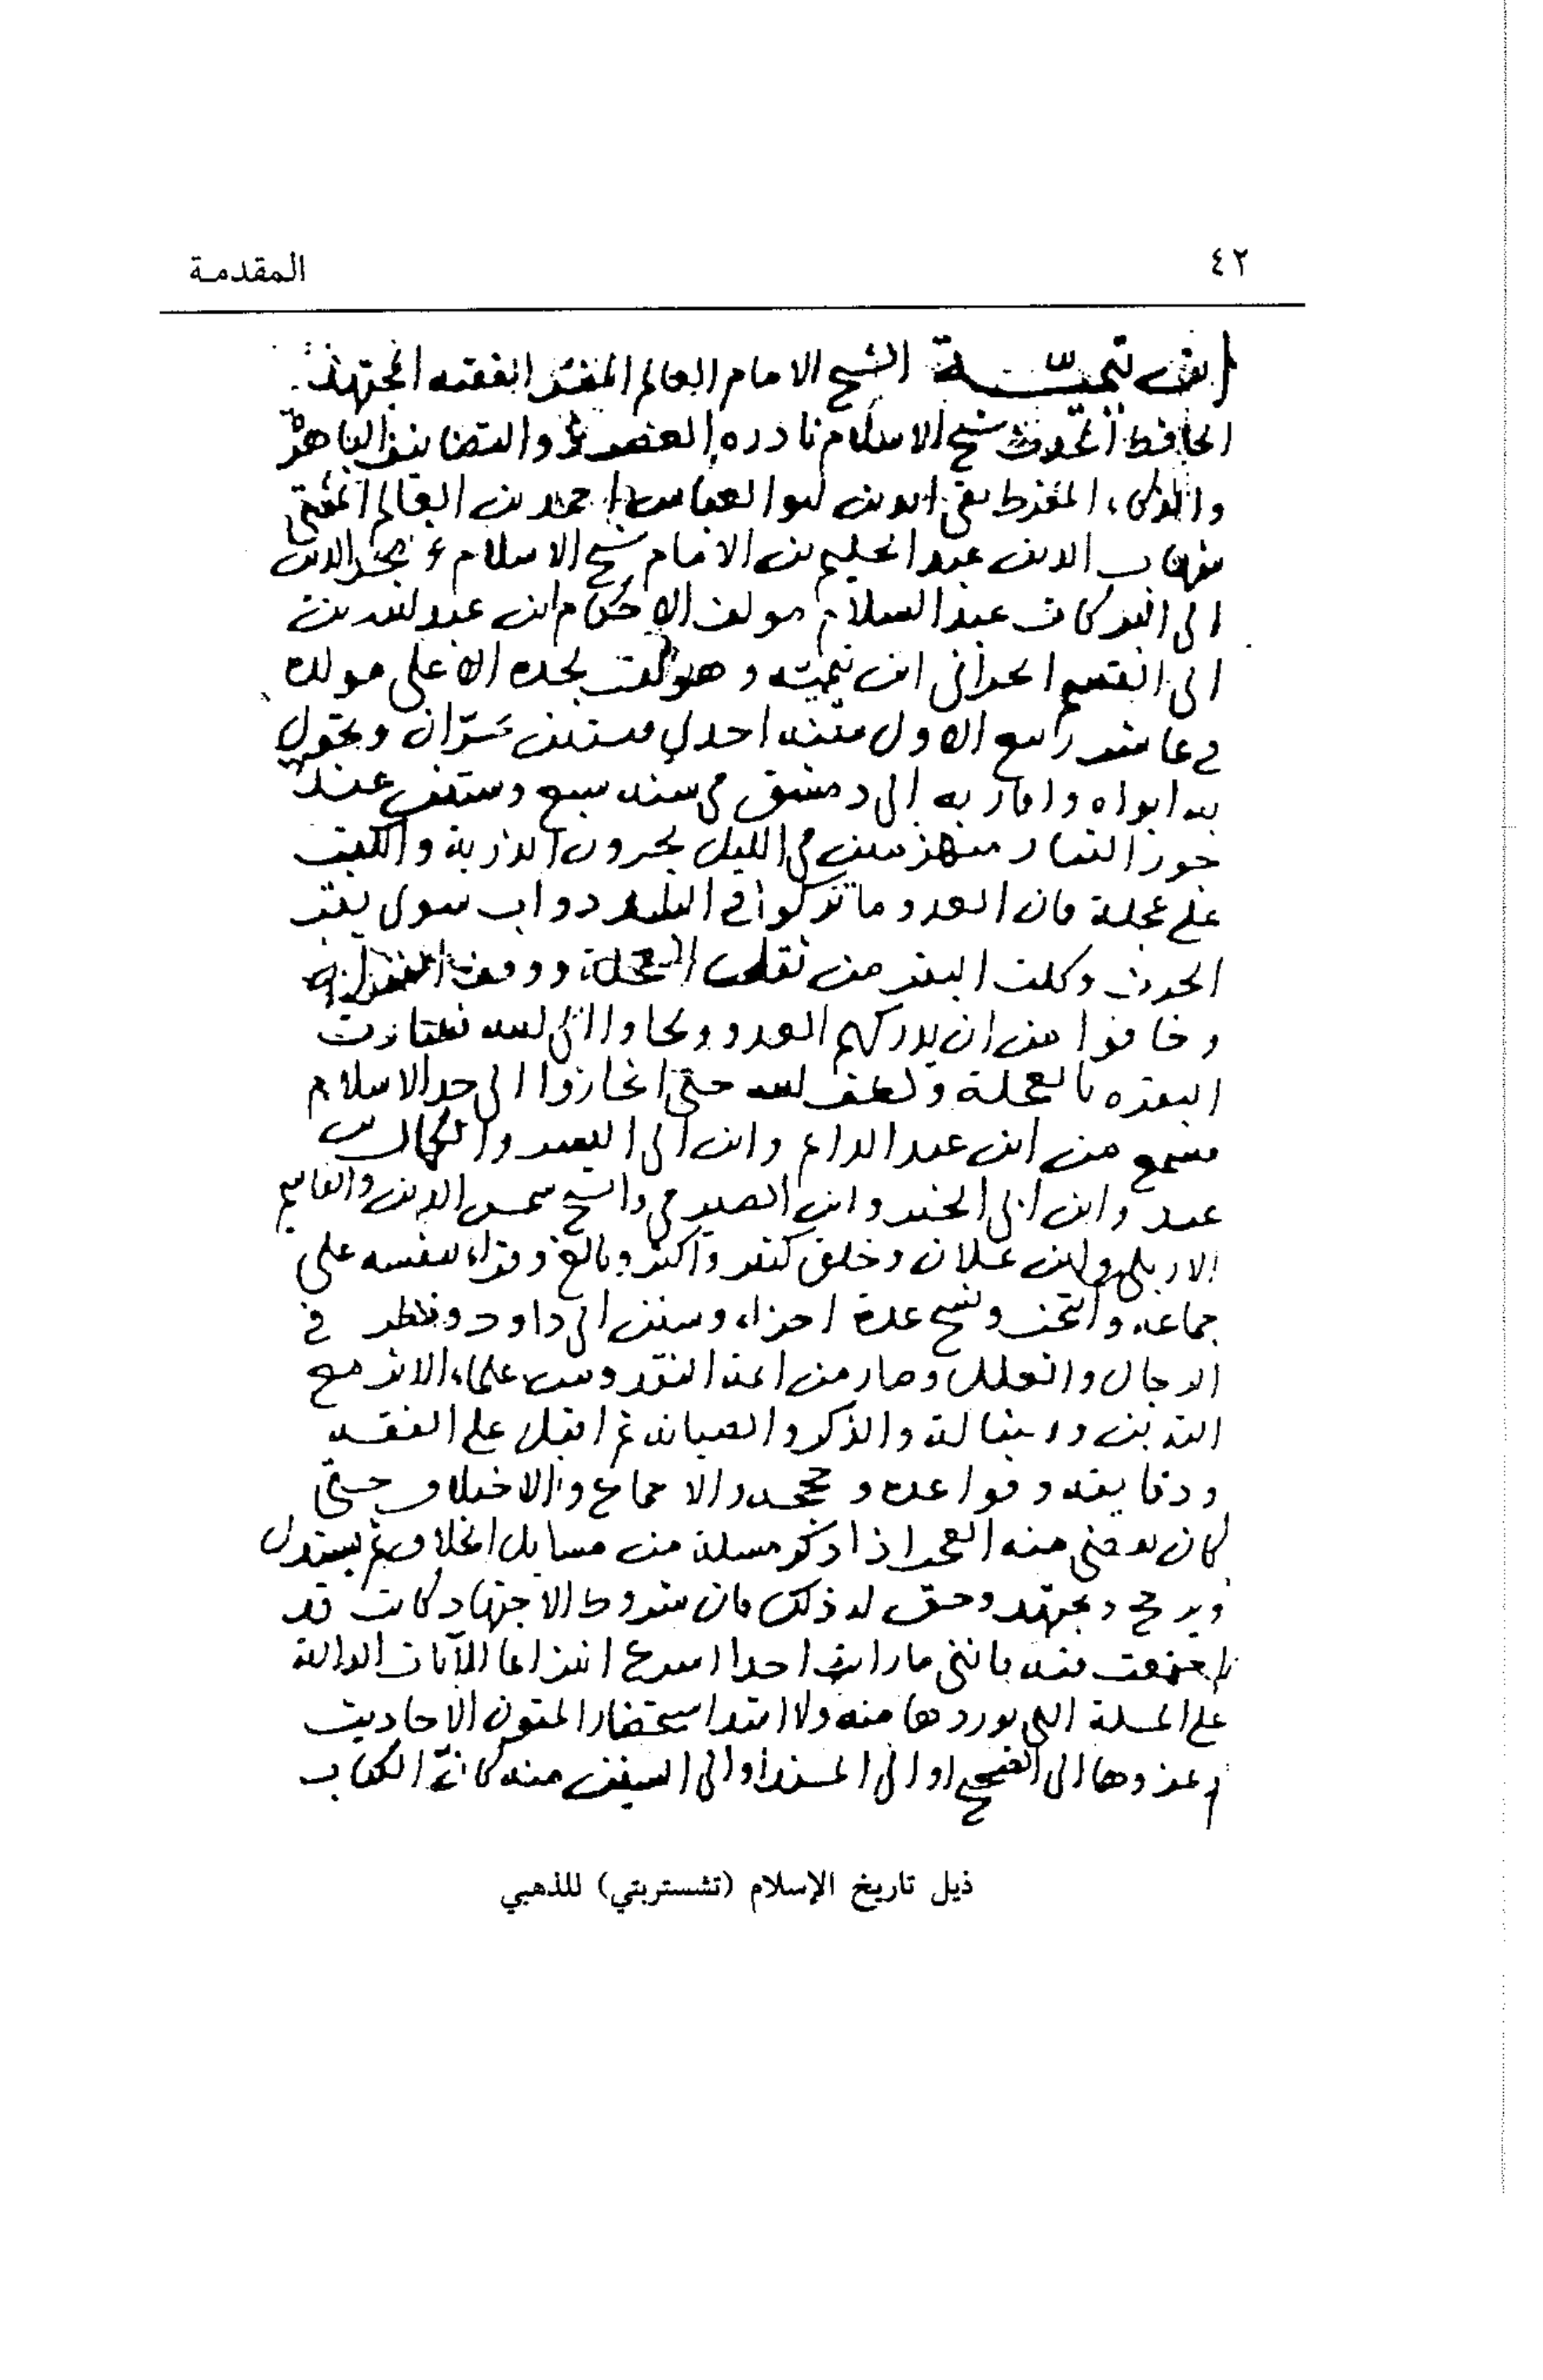 ٤٢
المقدمة
ابن تيمية الشيخ الامام العالم المفسر الفقيه المجتهد
الحافظ المحدث شيخ الاسلام نادرة العصر ذو التصانيف الباهرة
والذكاء المفرط تقي الدين ابو العباس احمد بن العالم المفتي
شهاب الدين عبد الحليم بن الامام شيخ الاسلام مجد الدين
ابي البركات عبد السلام مولف الاحكام ابن عبد الله بن
ابي القسم الحراني ابن تيمية وهو لقب لجده الاعلى مولده
في عاشر ربيع الاول سنة احدى وستين بحران وتحول
به ابواه واقاربه الى دمشق في سنة سبع وستين عند
جور التتار منهزمين في الليل يجرون الذرية والكتب
على عجلة فان العدو ما تركوا في البلد دواب سوى بقر
الحرث وكلت البقر من ثقل العجلة ووقف
وخافوا من ان يدركهم العدو ولجاوا الى الله فسارت
البقرة بالعجلة ولطف الله حتى انحازوا الى حد الاسلام
فسمع من ابن عبد الدايم وابن ابي اليسر والكمال بن
عبد وابن ابي الخير وابن الصيرفي والشيخ شمس الدين والقاسم
الاربلي وابن علان وخلق كثير واكثر وبالغ وقراء بنفسه على
جماعة وانتخب ونسخ عدة اجزاء وسنن ابي داود ونظر في
الرجال والعلل وصار من ايمة النقد ومن علماء الاثر مع
التدين والذكر والصيانة ثم اقبل على الفقه
ودقايقه وقواعده وحججه والاجماع والاختلاف حتى
كان يقضى منه العجب اذا ذكر مسلة من مسايل الخلاف ثم يستدل
ويرجح ويجتهد وحق له ذلك فان شروط الاجتهاد كانت قد
اجتمعت فيه فانني ما رايت احدا اسرع انتزاعا للآيات الدالة
على المسلة التي يوردها منه ولا اشد استحضارا لمتون الاحاديث
وعزوها الى الصحيح او الى المسند او الى السنن منه كانّ الكتاب
ذيل تاريخ الإسلام (تشستربتي) للذهبي